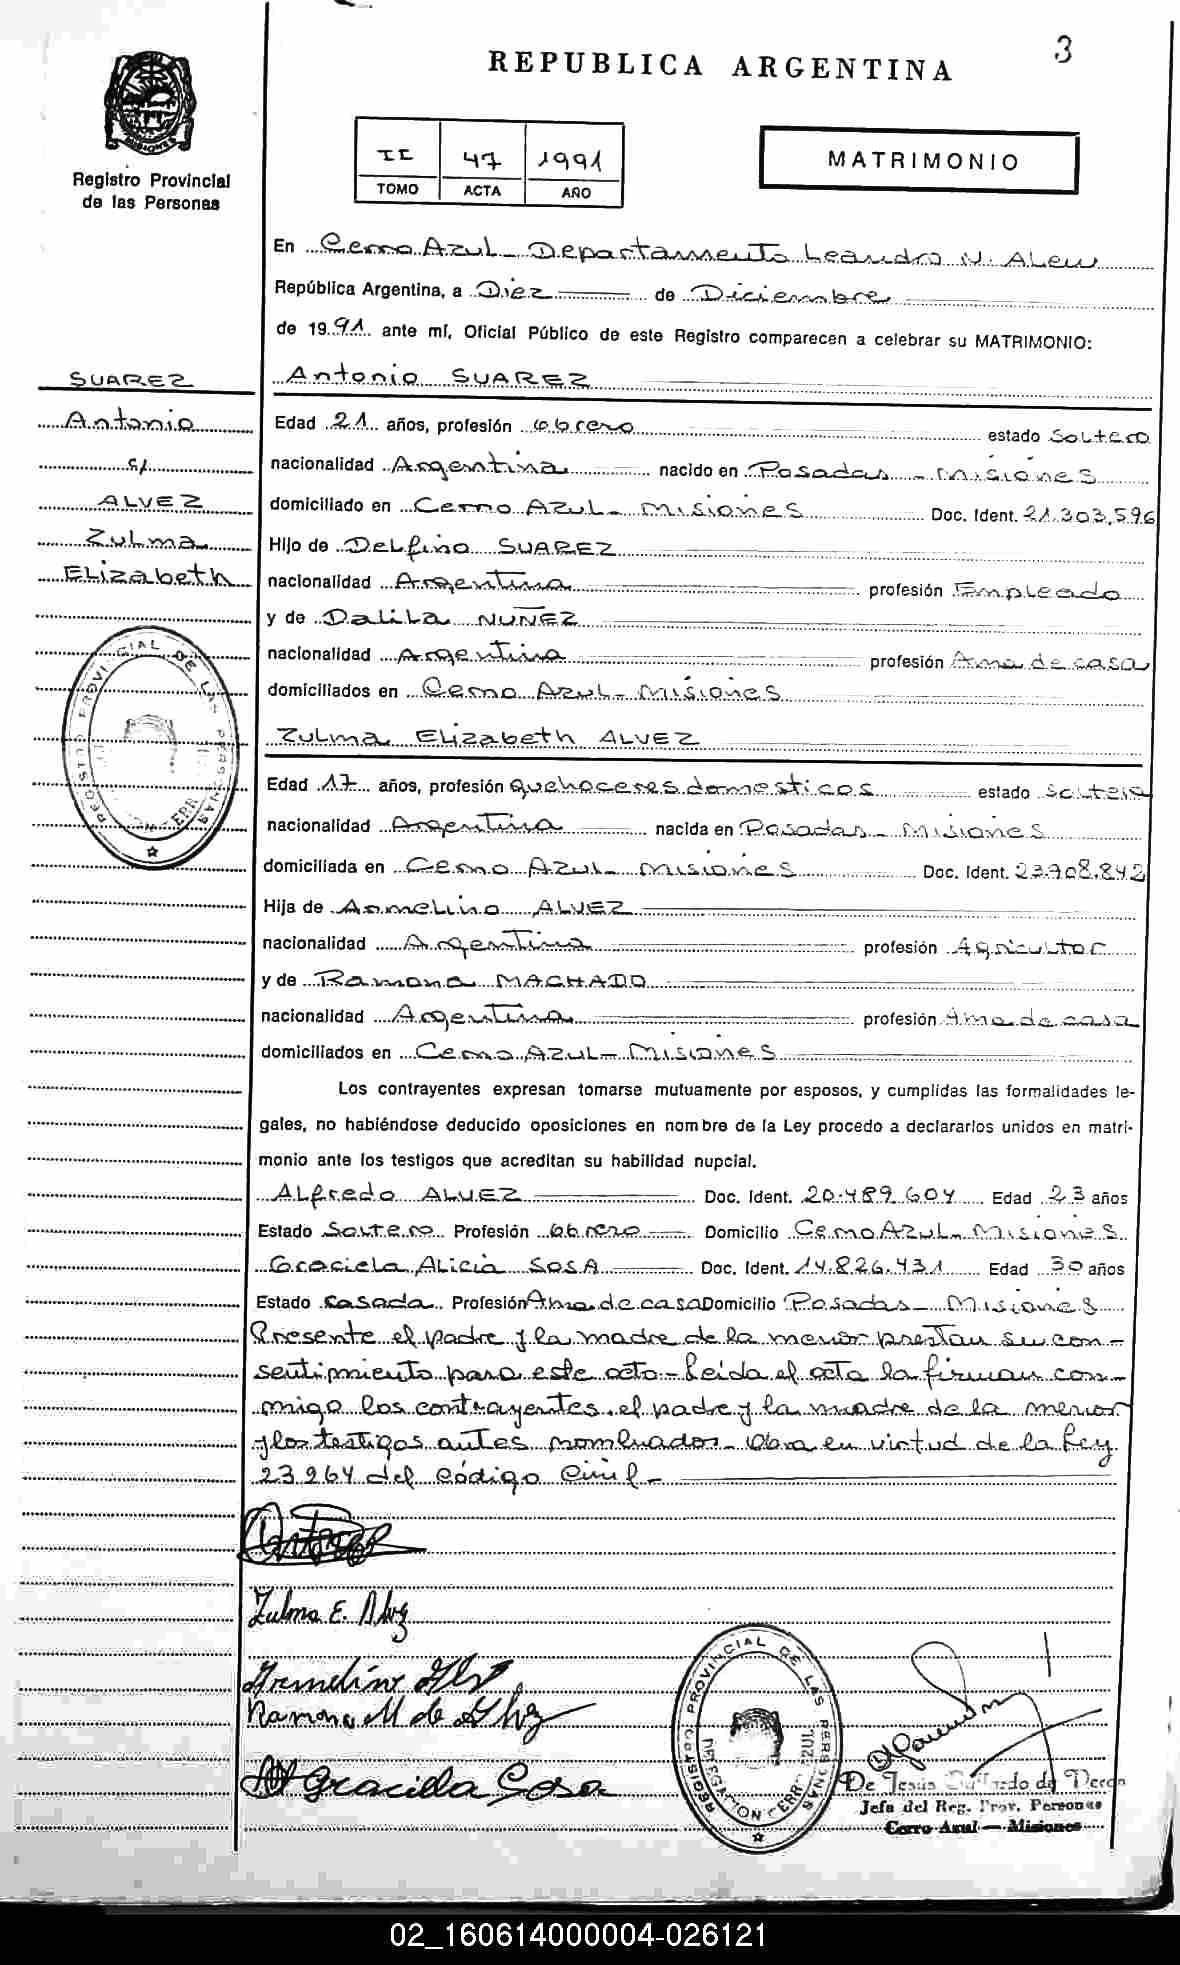 3
REPUBLICA ARGENTINA
MISIONES
Registro Provincial
de las Personas
II 47 1991
TOMO ACTA AÑO
MATRIMONIO
En Cerro Azul - Departamento Leandro N. Alem
República Argentina, a Diez de Diciembre
de 1991 ante mí, Oficial Público de este Registro comparecen a celebrar su MATRIMONIO:
SUAREZ
Antonio
c/
ALVEZ
Zulma
Elizabeth
Antonio SUAREZ
Edad 21 años, profesión obrero estado Soltero
nacionalidad Argentina nacido en Posadas - Misiones
domiciliado en Cerro Azul - Misiones Doc. Ident. 21.303.596
Hijo de Delfino SUAREZ
nacionalidad Argentina profesión Empleado
y de Dalila NUÑEZ
nacionalidad Argentina profesión Ama de casa
domiciliados en Cerro Azul - Misiones
Zulma Elizabeth ALVEZ
Edad 17 años, profesión Quehaceres domesticos estado Soltera
nacionalidad Argentina nacida en Posadas - Misiones
domiciliada en Cerro Azul - Misiones Doc. Ident. 23.908.842
Hija de Armelino ALVEZ
nacionalidad Argentina profesión Agricultor
y de Ramona MACHADO
nacionalidad Argentina profesión Ama de casa
domiciliados en Cerro Azul - Misiones
Los contrayentes expresan tomarse mutuamente por esposos, y cumplidas las formalidades le-
gales, no habiéndose deducido oposiciones en nombre de la Ley procedo a declararlos unidos en matri-
monio ante los testigos que acreditan su habilidad nupcial.
Alfredo ALVEZ Doc. Ident. 20.489.604 Edad 23 años
Estado Soltero Profesión obrero Domicilio Cerro Azul - Misiones
Graciela Alicia SOSA Doc. Ident. 14.826.431 Edad 30 años
Estado Casada Profesión Ama de casa Domicilio Posadas - Misiones
Presente el padre y la madre de la menor prestan su con-
sentimiento para este acto - Leida el acta la firman con-
migo los contrayentes, el padre y la madre de la menor
y los testigos antes nombrados - Obra en virtud de la Ley
23264 del Código Civil -
REGISTRO PROVINCIAL DE LAS PERSONAS
Zulma E. Alvez
Armelino Alvez
Ramona M de Alvez
Graciela Sosa
REGISTRO PROVINCIAL DE LAS PERSONAS
DELEGACION CERRO AZUL
De Jesús Gallardo de
Jefa del Reg. Prov. Personas
Cerro Azul — Misiones
02_160614000004-026121